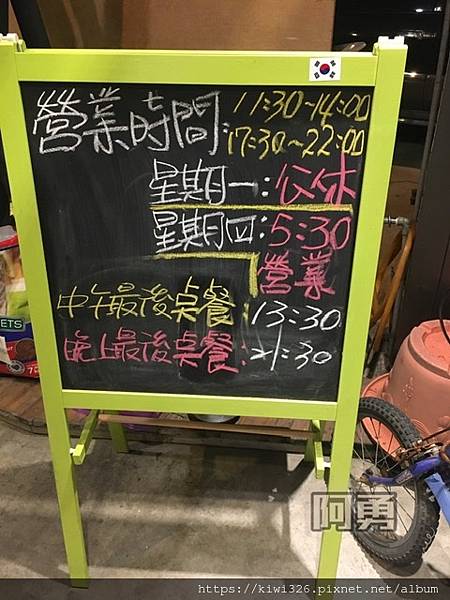 營業時間:11:30~14:00
17:30~22:00
星期一:公休
星期四:5:30
營業
中午最後桌餐:13:30
晚上最後桌餐:21:30
ETS
阿勇
https://kiwi326.pixnet.net/album